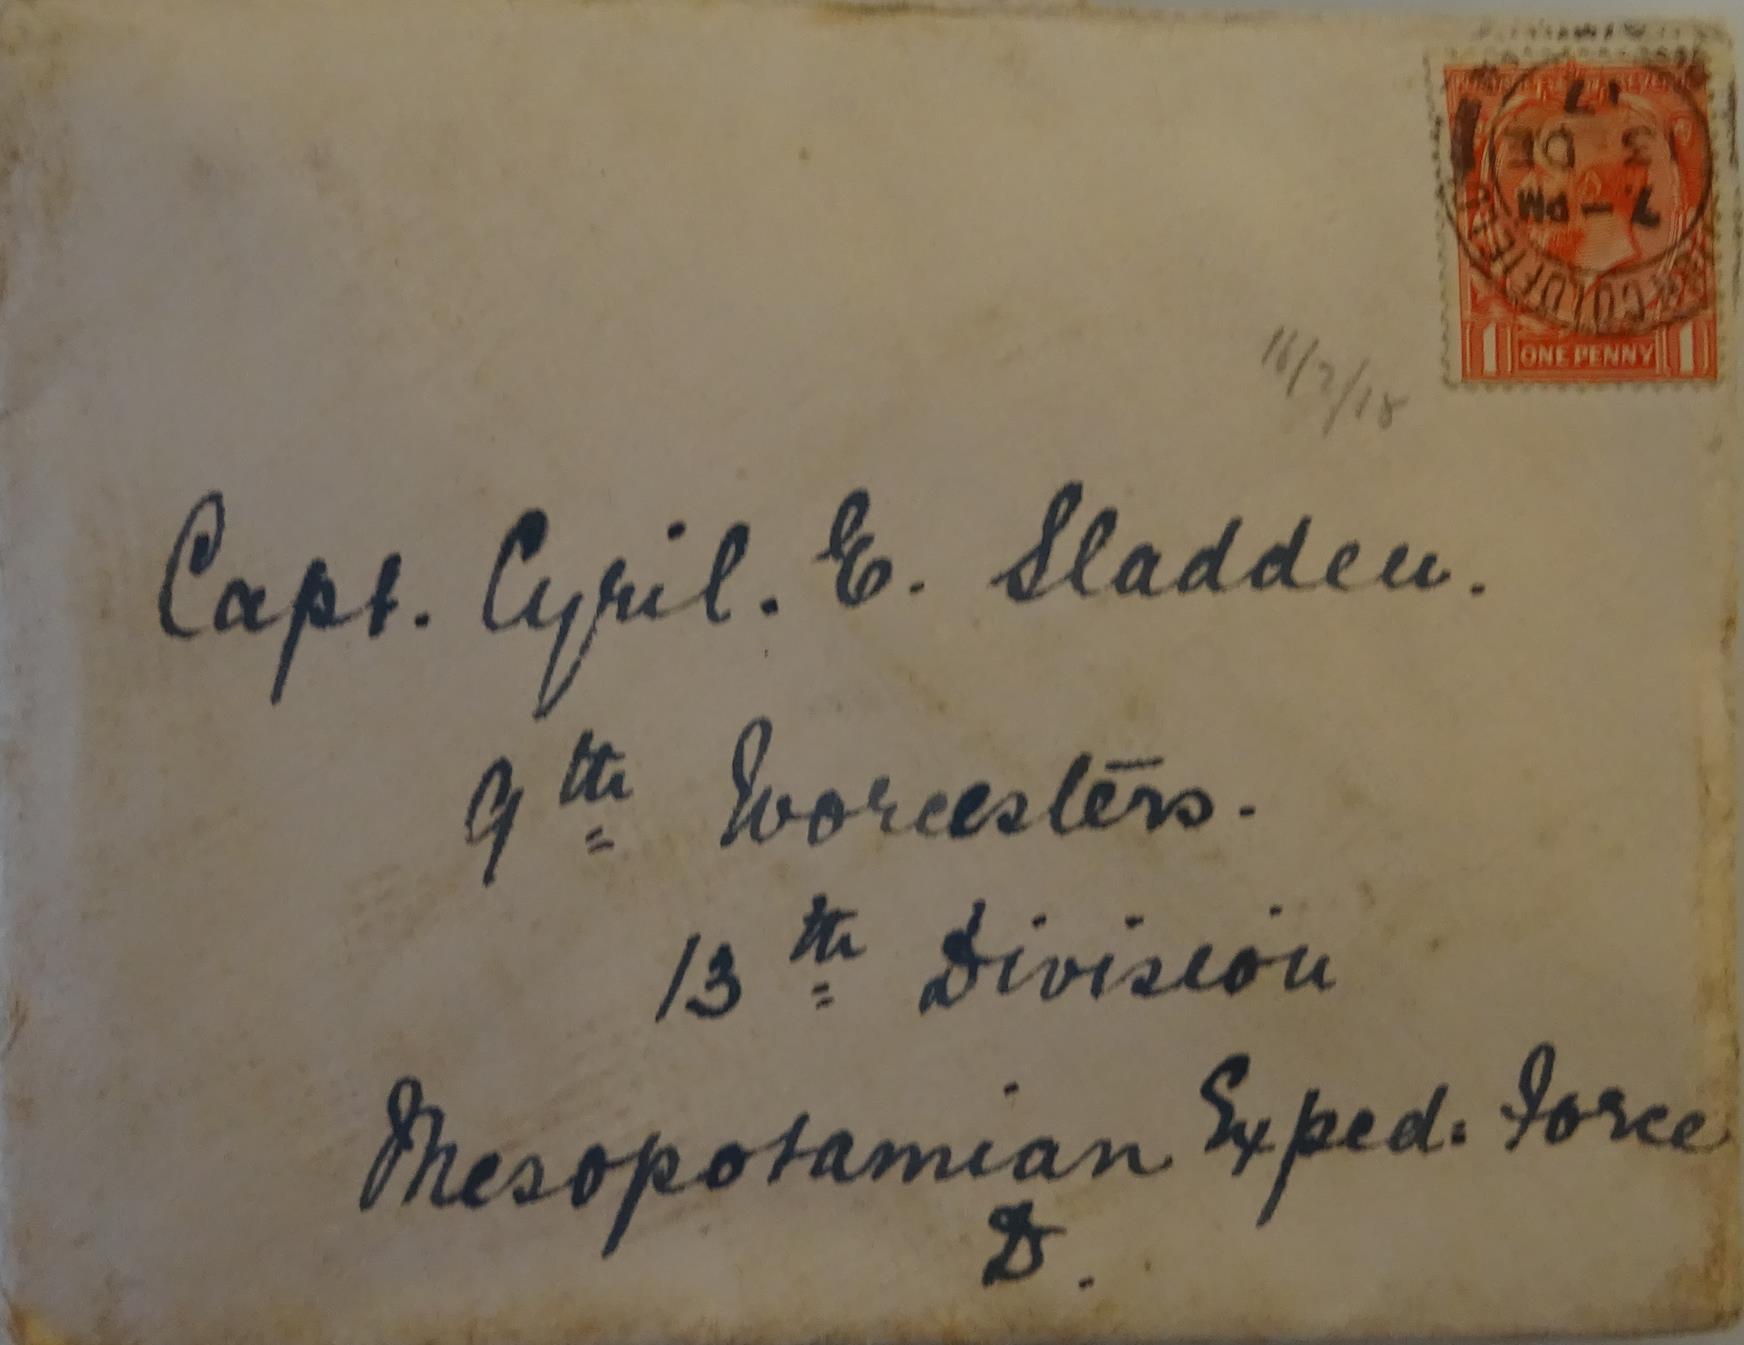 7 - PM
3 DE
17
ONE PENNY
1 1
16/2/18
Capt. Cyril. E. Sladden.
9th Worcesters.
13th Division
Mesopotamian Exped: Force
D.